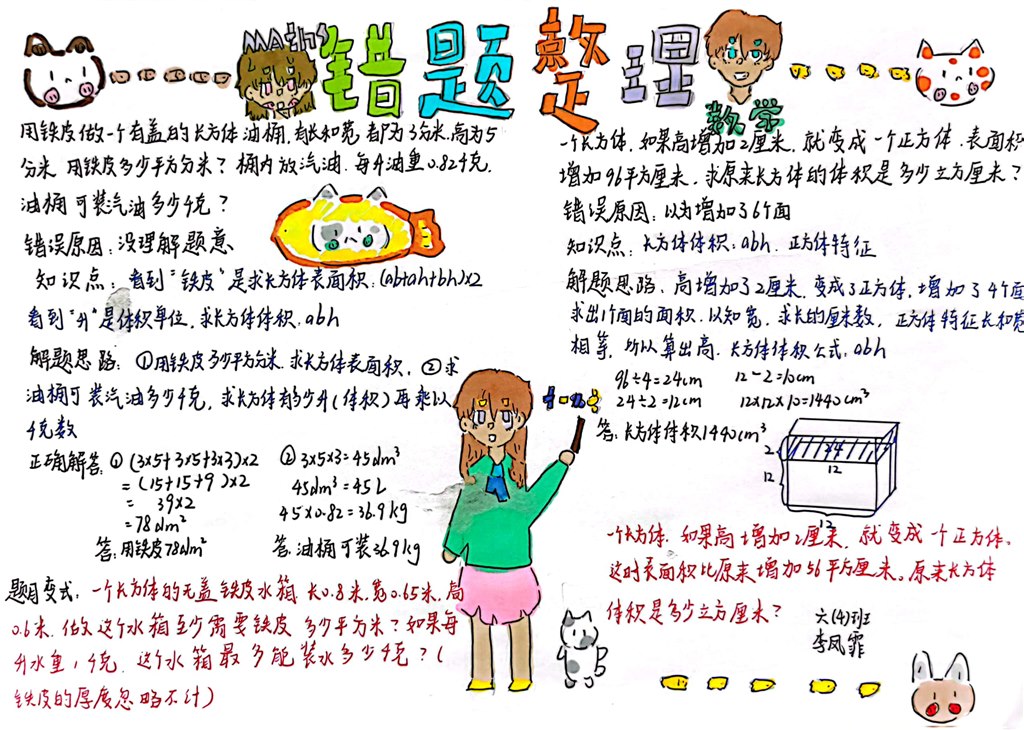 Maths
错题整理
数学
用铁皮做一个有盖的长方体油桶,有长和宽都为3分米,高为5
分米.用铁皮多少平方分米?桶内放汽油.每升油重0.82千克.
油桶可装汽油多少千克?
错误原因:没理解题意
知识点:看到"铁皮"是求长方体表面积:(ab+ah+bh)×2
看到"升"是体积单位,求长方体体积:abh
解题思路:①用铁皮多少平方分米.求长方体表面积,②求
油桶可装汽油多少千克,求长方体有多少升(体积)再乘以
千克数
正确解答:①(3×5+3×5+3×3)×2
=(15+15+9)×2
=39×2
=78dm²
答:用铁皮78dm²
②3×5×3=45dm³
45dm³=45L
45×0.82=36.9kg
答:油桶可装36.9kg
题目变式:一个长方体的无盖铁皮水箱.长0.8米,宽0.65米,高
0.6米.做这个水箱至少需要铁皮多少平方米?如果每
升水重1千克.这个水箱最多能装水多少千克?(
铁皮的厚度忽略不计)
一个长方体,如果高增加2厘米,就变成一个正方体.表面积
增加96平方厘米.求原来长方体的体积是多少立方厘米?
错误原因:以为增加了6个面
知识点:长方体体积:abh.正方体特征
解题思路:高增加了2厘米.变成了正方体,增加了4个面
求出1个面的面积.以知宽.求长的厘米数,正方体特征长和宽
相等,所以算出高.长方体体积公式:abh
96÷4=24cm 12-2=10cm
24÷2=12cm 12×12×10=1440cm³
答:长方体体积1440cm³
2
24
12
12
12
一个长方体.如果高增加2厘米,就变成一个正方体。
这时表面积比原来增加56平方厘米。原来长方体
体积是多少立方厘米?
六(4)班
李凤霏